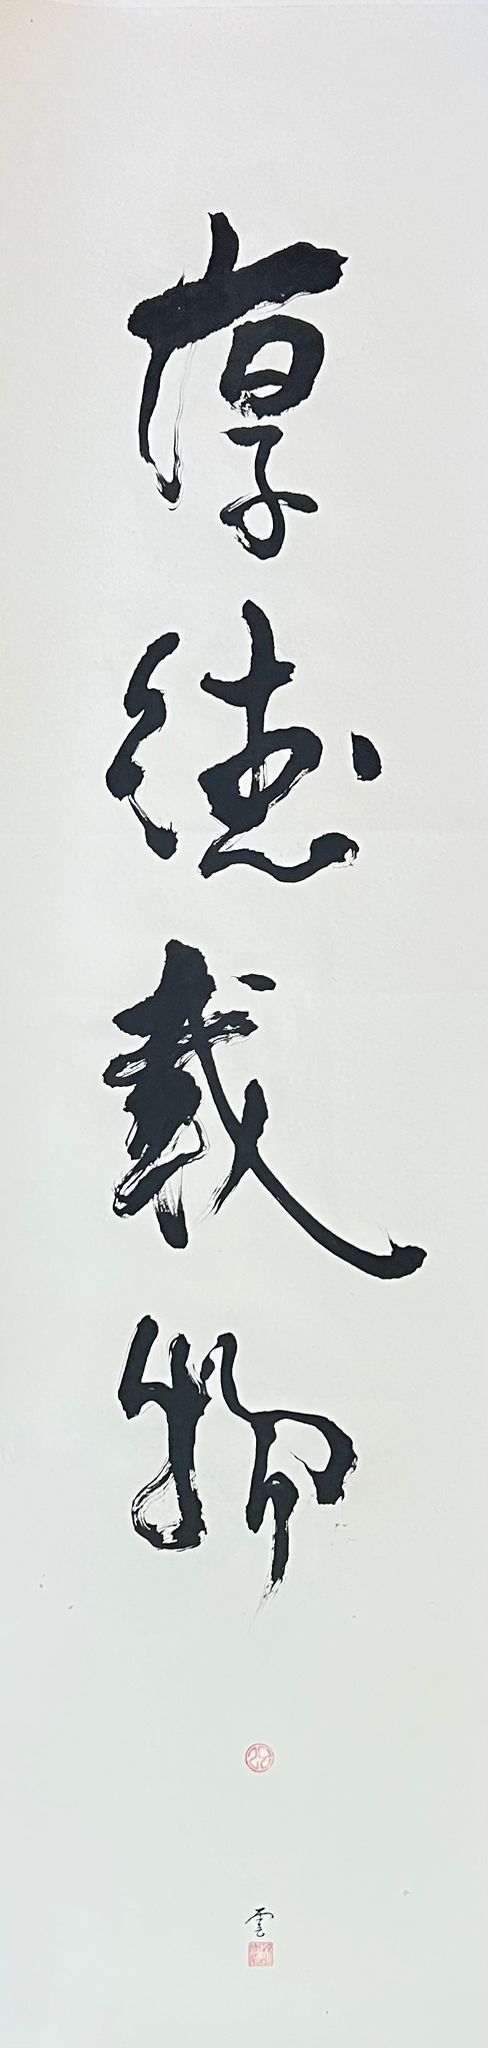 厚德載物
雲